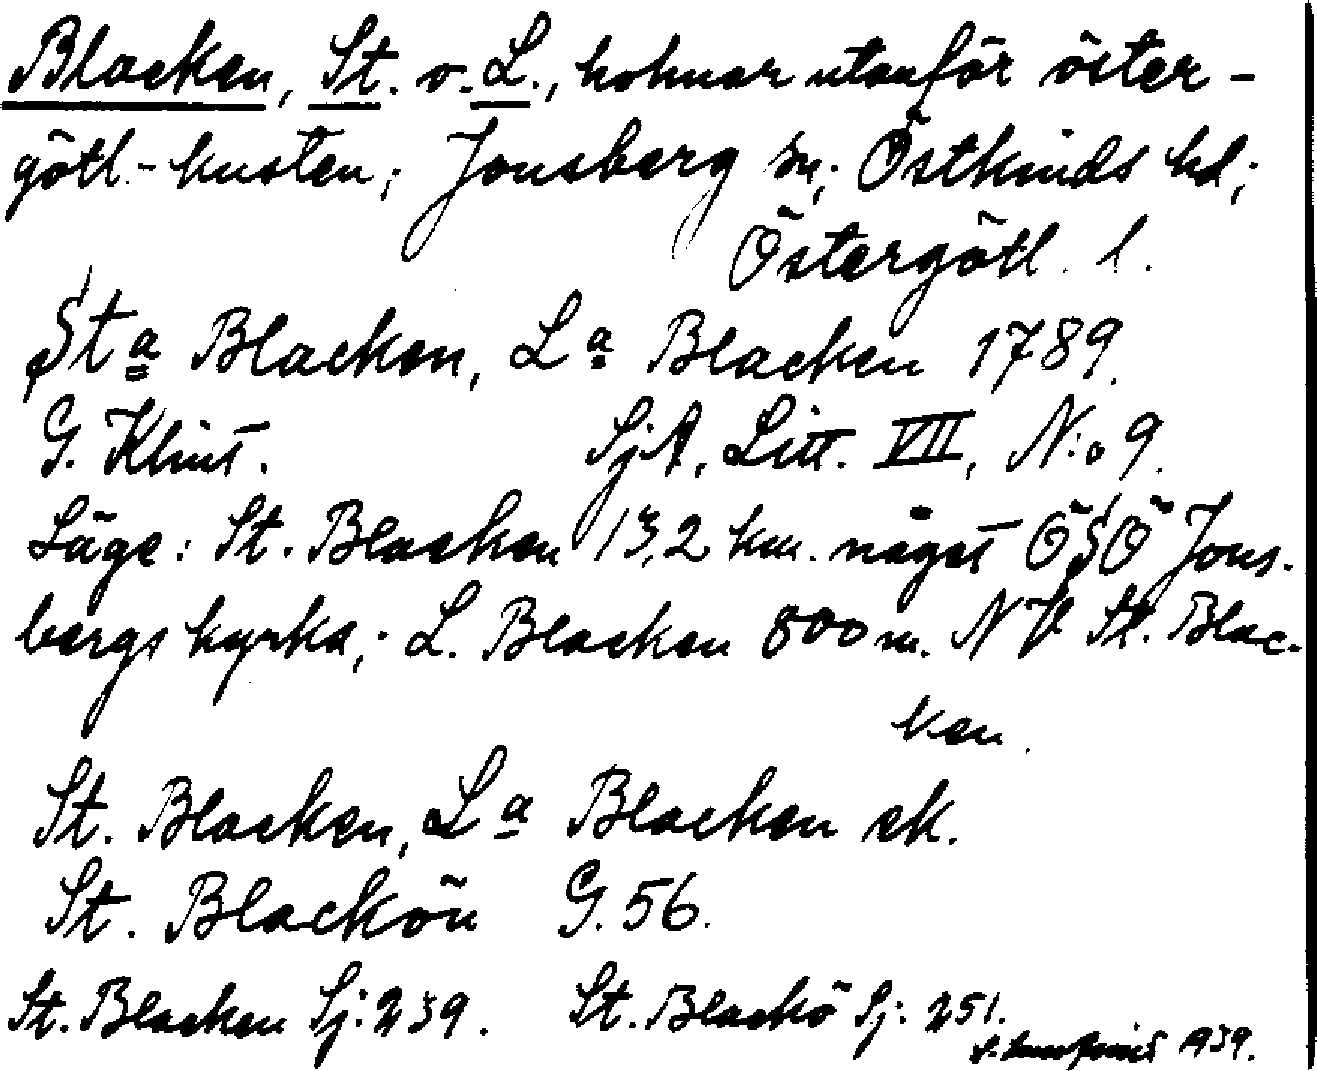 Blacken, St. o. L., holmar utanför öster-
götl.-kusten; Jonsberg sn; Östkinds hd;
Östergötl. l.
St<u>a</u> Blacken, L<u>a</u> Blacken 1789.
G. Klint. SjA, Litt. VII, N:o 9.
Läge: St. Blacken 13,2 km. något ÖSÖ Jons-
bergs kyrka; L. Blacken 800 m. NV St. Blac-
ken.
St. Blacken, La Blacken ek.
St. Blackön G. 56.
St. Blacken Sj: 239. St. Blackö Sj: 251.
1939.